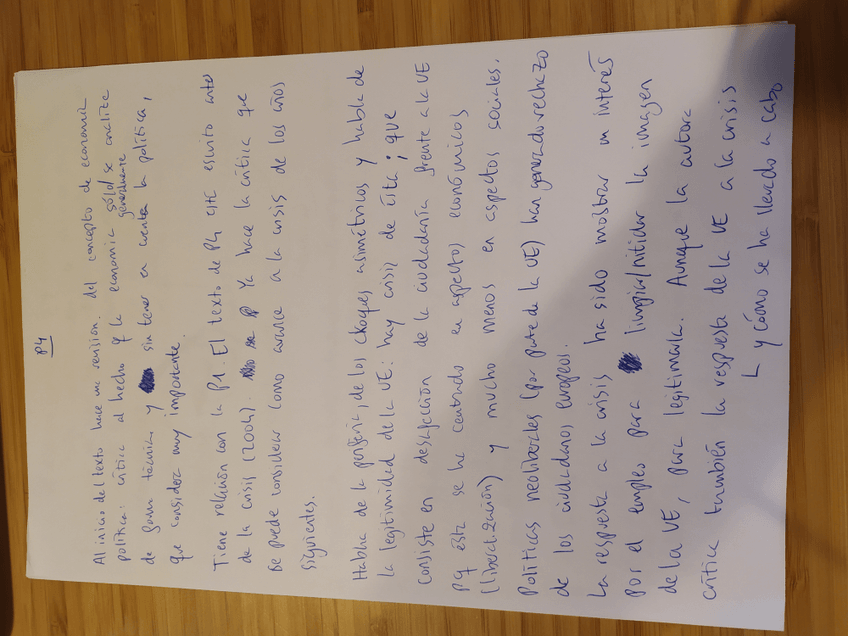 P4
Al inicio del texto hace una revisión del concepto de economía
política: crítica al hecho q la economía sólo/ se analice
generalmente
de forma técnica, y sin tener en cuenta la política,
que considera muy importante.
Tiene relación con la P1. El texto de P4 está escrito antes
de la crisis (2004). Ya hace la crítica que
se puede considerar como avance a la crisis de los años
siguientes.
Habla de la periferia, de los choques asimétricos y habla de
la legitimidad de la UE: hay crisis de ésta; que
consiste en desafección de la ciudadanía frente a la UE
pq ésta se ha centrado en aspectos económicos
(liberalización) y mucho menos en aspectos sociales.
Políticas neoliberales (por parte de la UE) han generado rechazo
de los ciudadanos europeos.
La respuesta a la crisis ha sido mostrar un interés
por el empleo para limpiar/nitidar la imagen
de la UE, para legitimarla. Aunque la autora
crítica también la respuesta de la UE a la crisis
y cómo se ha llevado a cabo